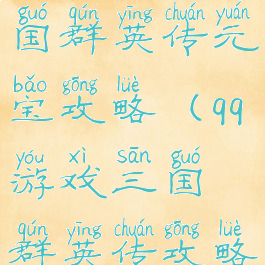 guó qún yīng chuán yuán
国群英传元
bǎo gōng lüè
宝攻略（qq
yóu xì sān guó
游戏三国
qún yīng chuán gōng lüè
群英传攻略